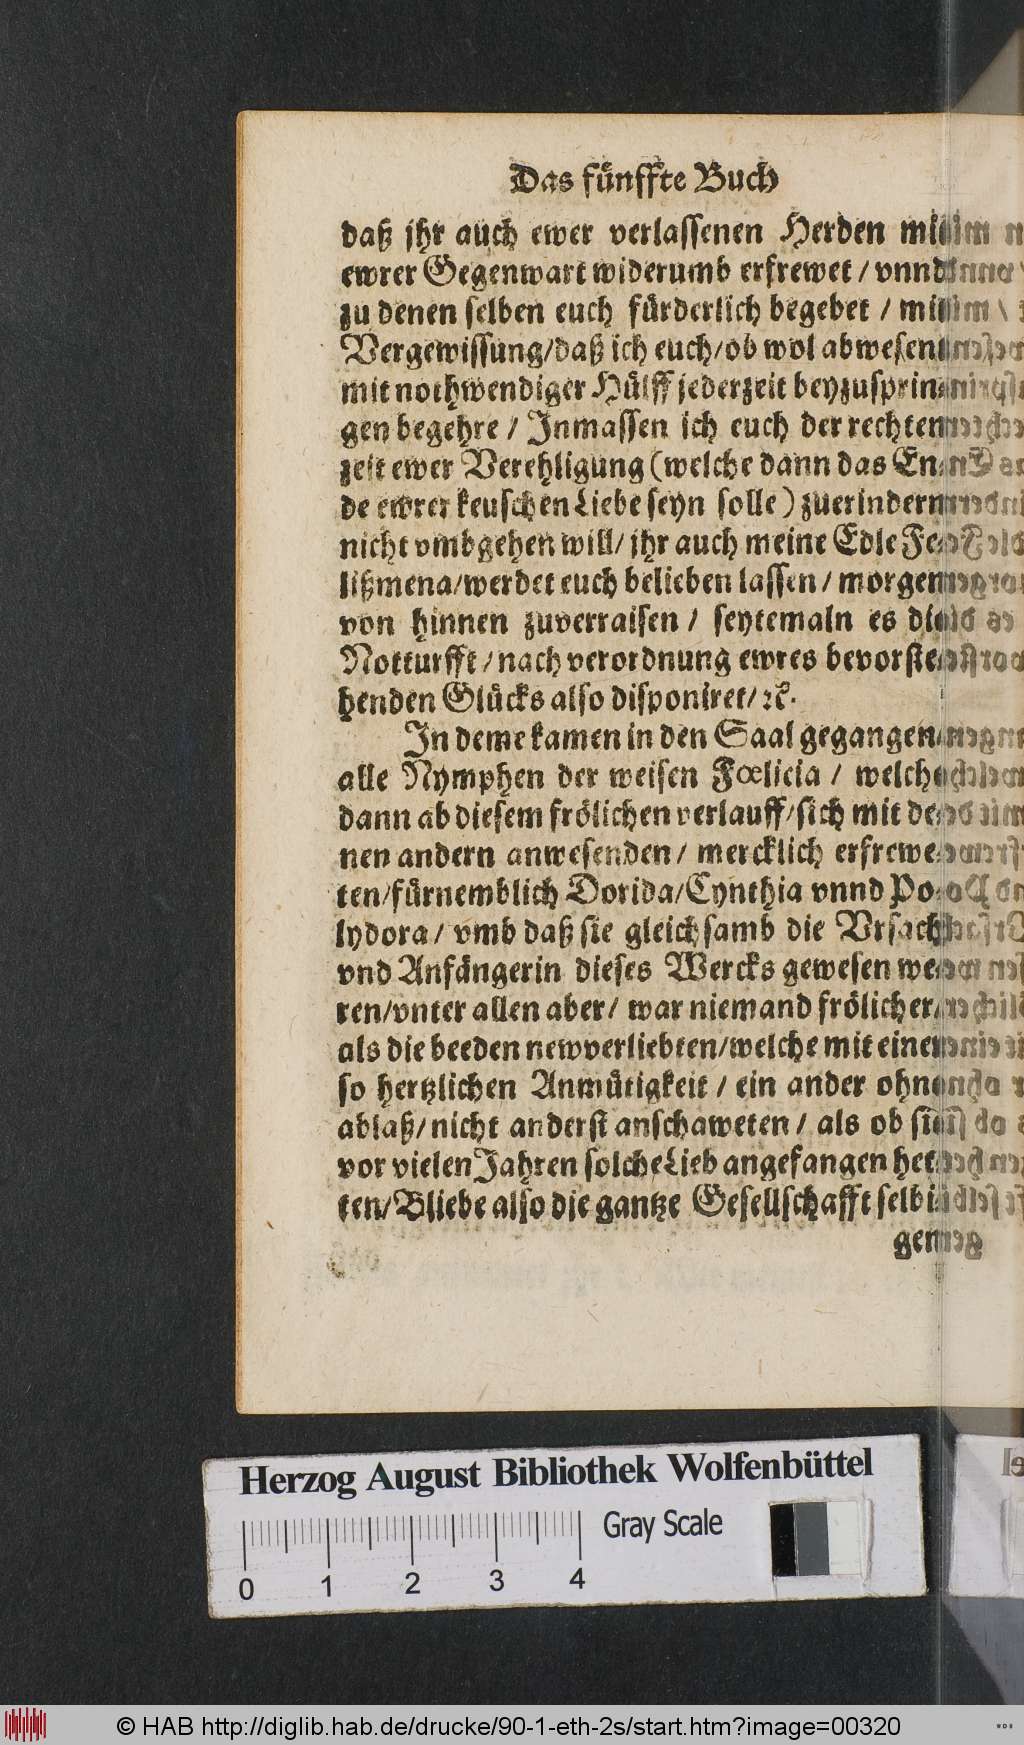 Das fünffte Buch
daß jhr auch ewer verlassenen Herden mit
ewrer Gegenwart widerumb erfrewet / vnnd
zu denen selben euch fürderlich begebet / mit
Vergewissung/daß ich euch/ob wol abwesent
mit nothwendiger Hülff jederzeit beyzusprin-
gen begehre / Inmassen ich euch der rechten
zeit ewer Verehligung (welche dann das En-
de ewrer keuschen Liebe seyn solle) zuerindern
nicht vmbgehen will/ jhr auch meine Edle Fe-
lißmena/werdet euch belieben lassen / morgen
von hinnen zuverraisen / seytemaln es die
Notturfft / nach verordnung ewres bevorste-
henden Glücks also disponiret/ ꝛc.
In deme kamen in den Saal gegangen
alle Nymphen der weisen Fœlicia / welche
dann ab diesem frölichen verlauff/sich mit de-
nen andern anwesenden / mercklich erfrewe-
ten/fürnemblich Dorida/Cynthia vnnd Po-
lydora / vmb daß sie gleichsamb die Vrsach
vnd Anfängerin dieses Wercks gewesen we-
ren/vnter allen aber / war niemand frölicher/
als die beeden newverliebten/welche mit einer
so hertzlichen Anmütigkeit / ein ander ohn
ablaß/ nicht anderst anschaweten / als ob sie
vor vielen Jahren solche Lieb angefangen het-
ten/Bliebe also die gantze Gesellschafft selbi-
gem
Herzog August Bibliothek Wolfenbüttel
Gray Scale
0 1 2 3 4
© HAB http://diglib.hab.de/drucke/90-1-eth-2s/start.htm?image=00320